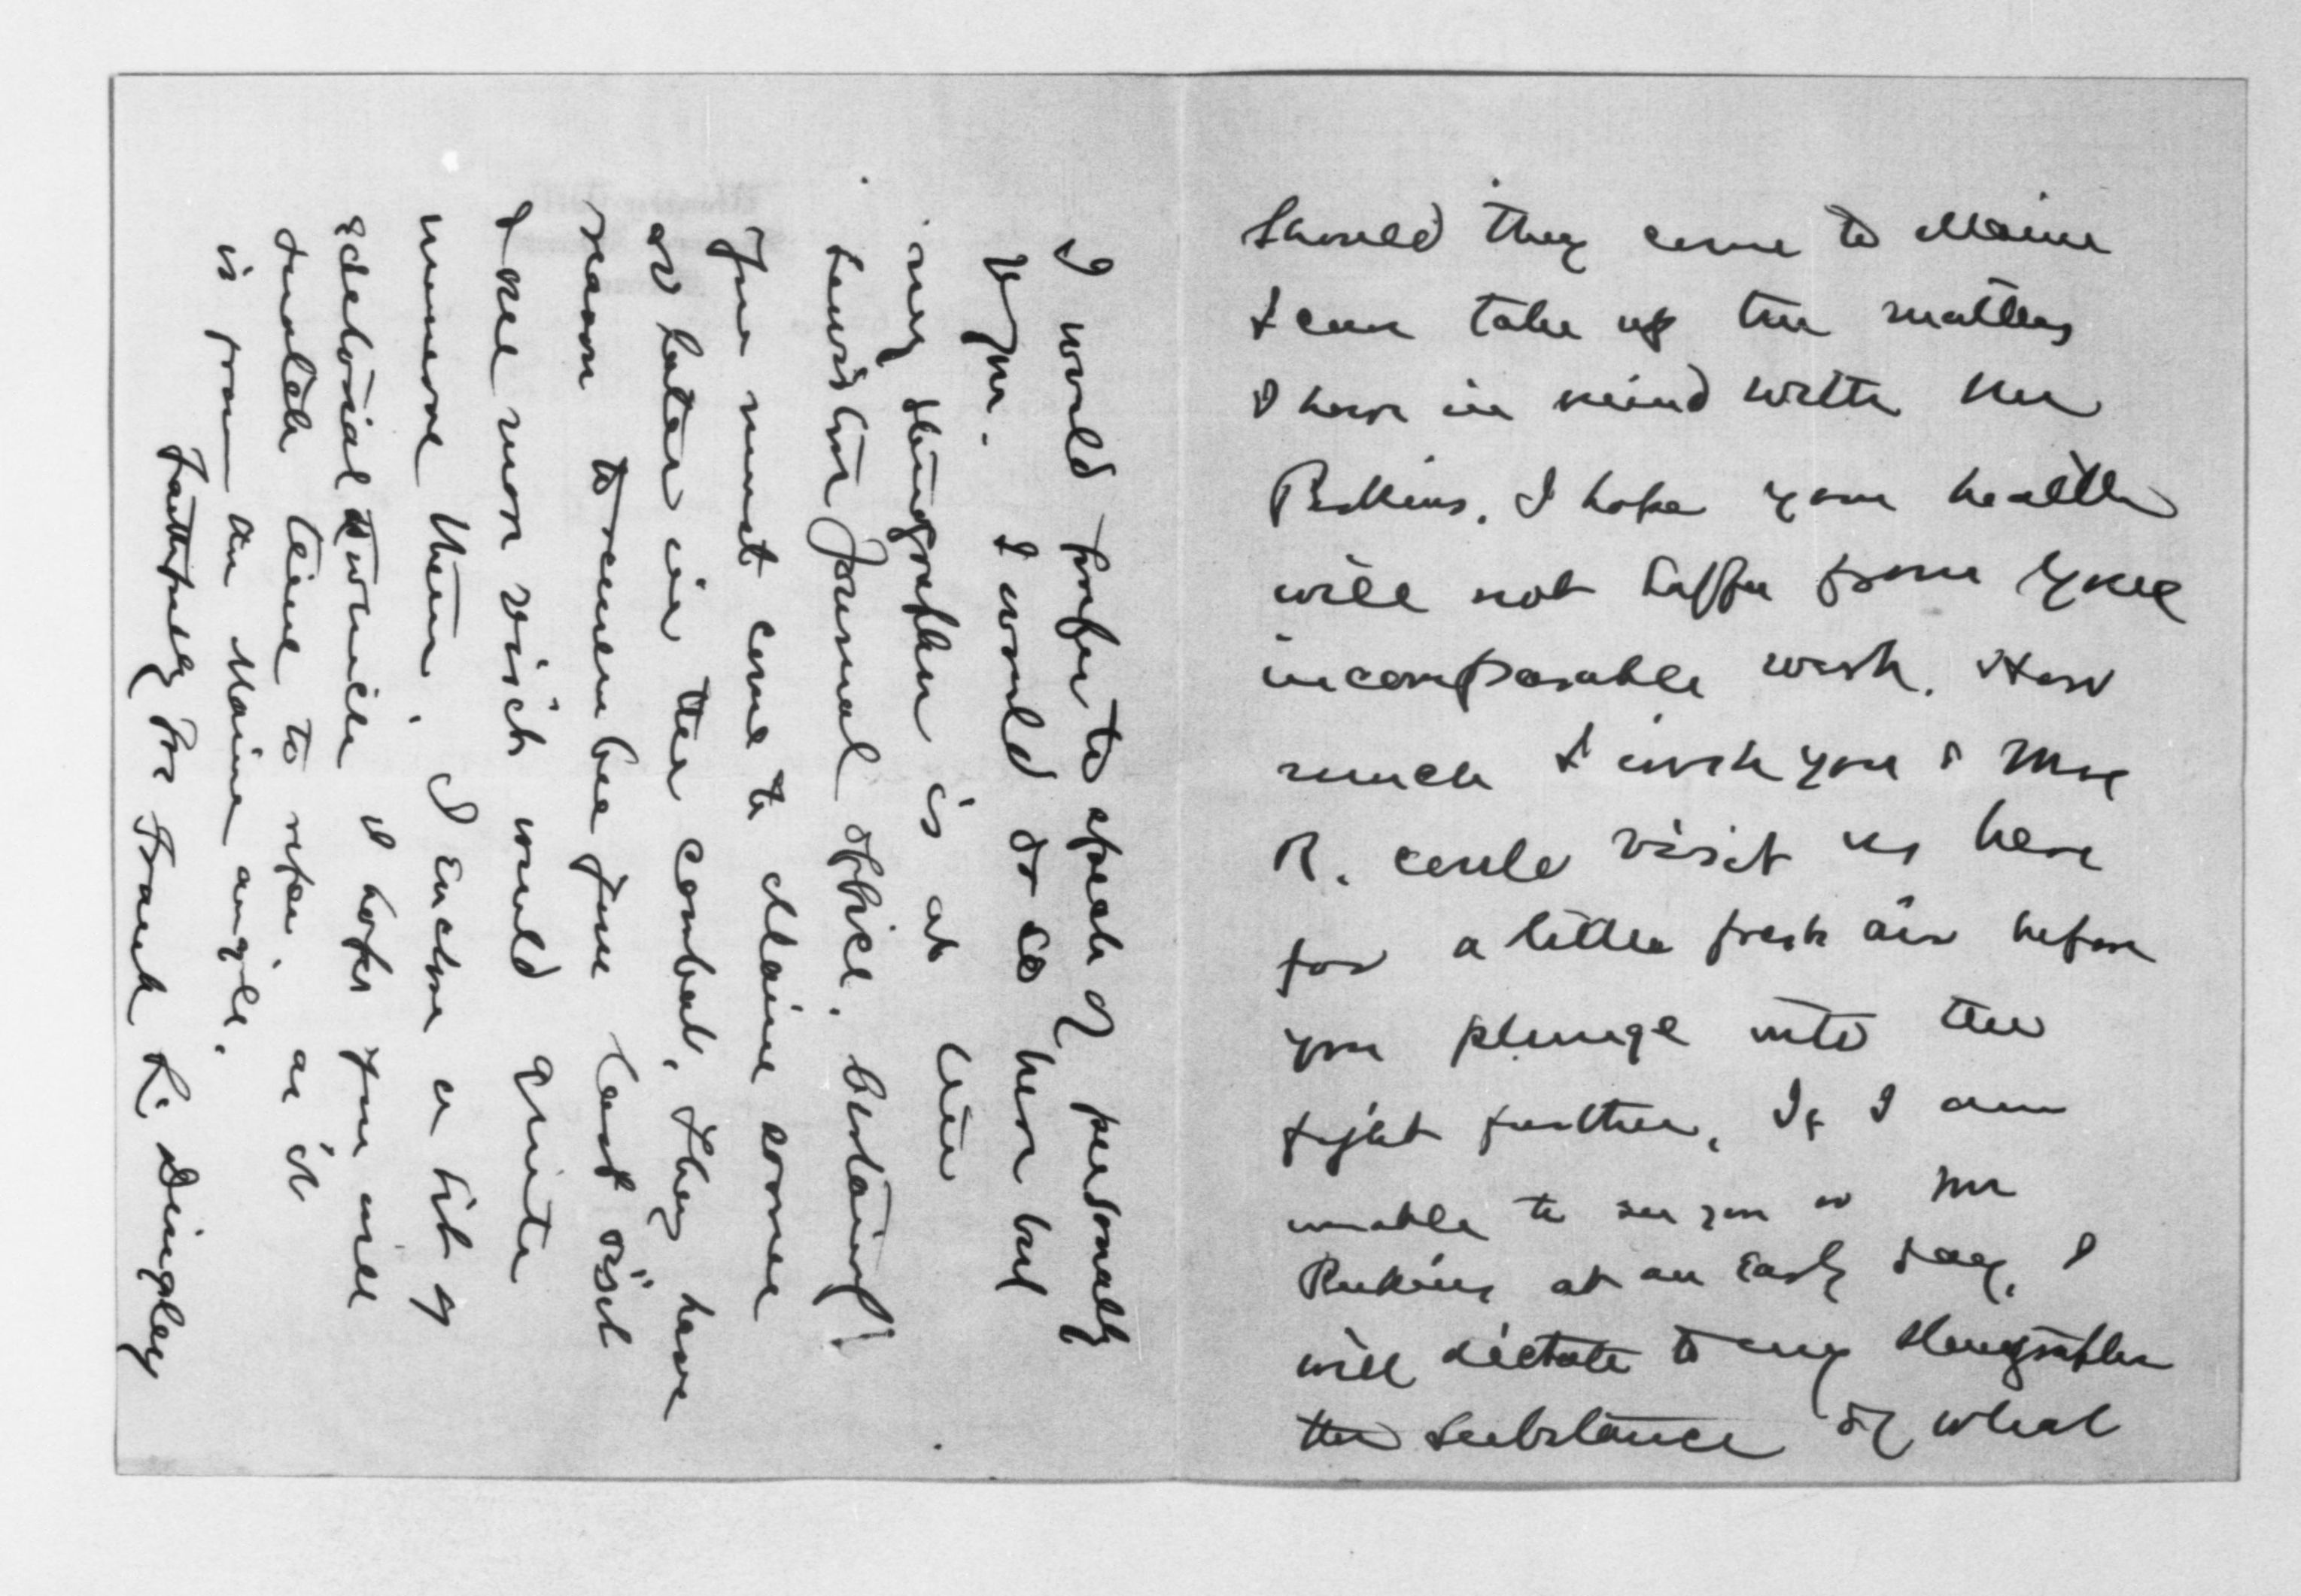 Should they come to Maine
I can take up the matters
I have in mind with Mr
Perkins. I hope your health
will not suffer from your
incomparable work. How
much I wish you & Mrs
R. could visit us here
for a little fresh air before
you plunge into the
fight further. If I am
unable to see you or Mr
Perkins at an early day, I
will dictate to my stenographer
the substance of what
I would prefer to speak of personally
to you. I would do so here but
my stenographer is at the
Lewiston Journal office.
You must come to Maine sooner
or later in the combat. They have
reason to remember your last visit
& one more visit would quite
unnerve them. I enclose a bit of
editorial I hope you will
snatch time to read as it
is from the Maine angle.
Faithfully Yrs Frank L. Dingley